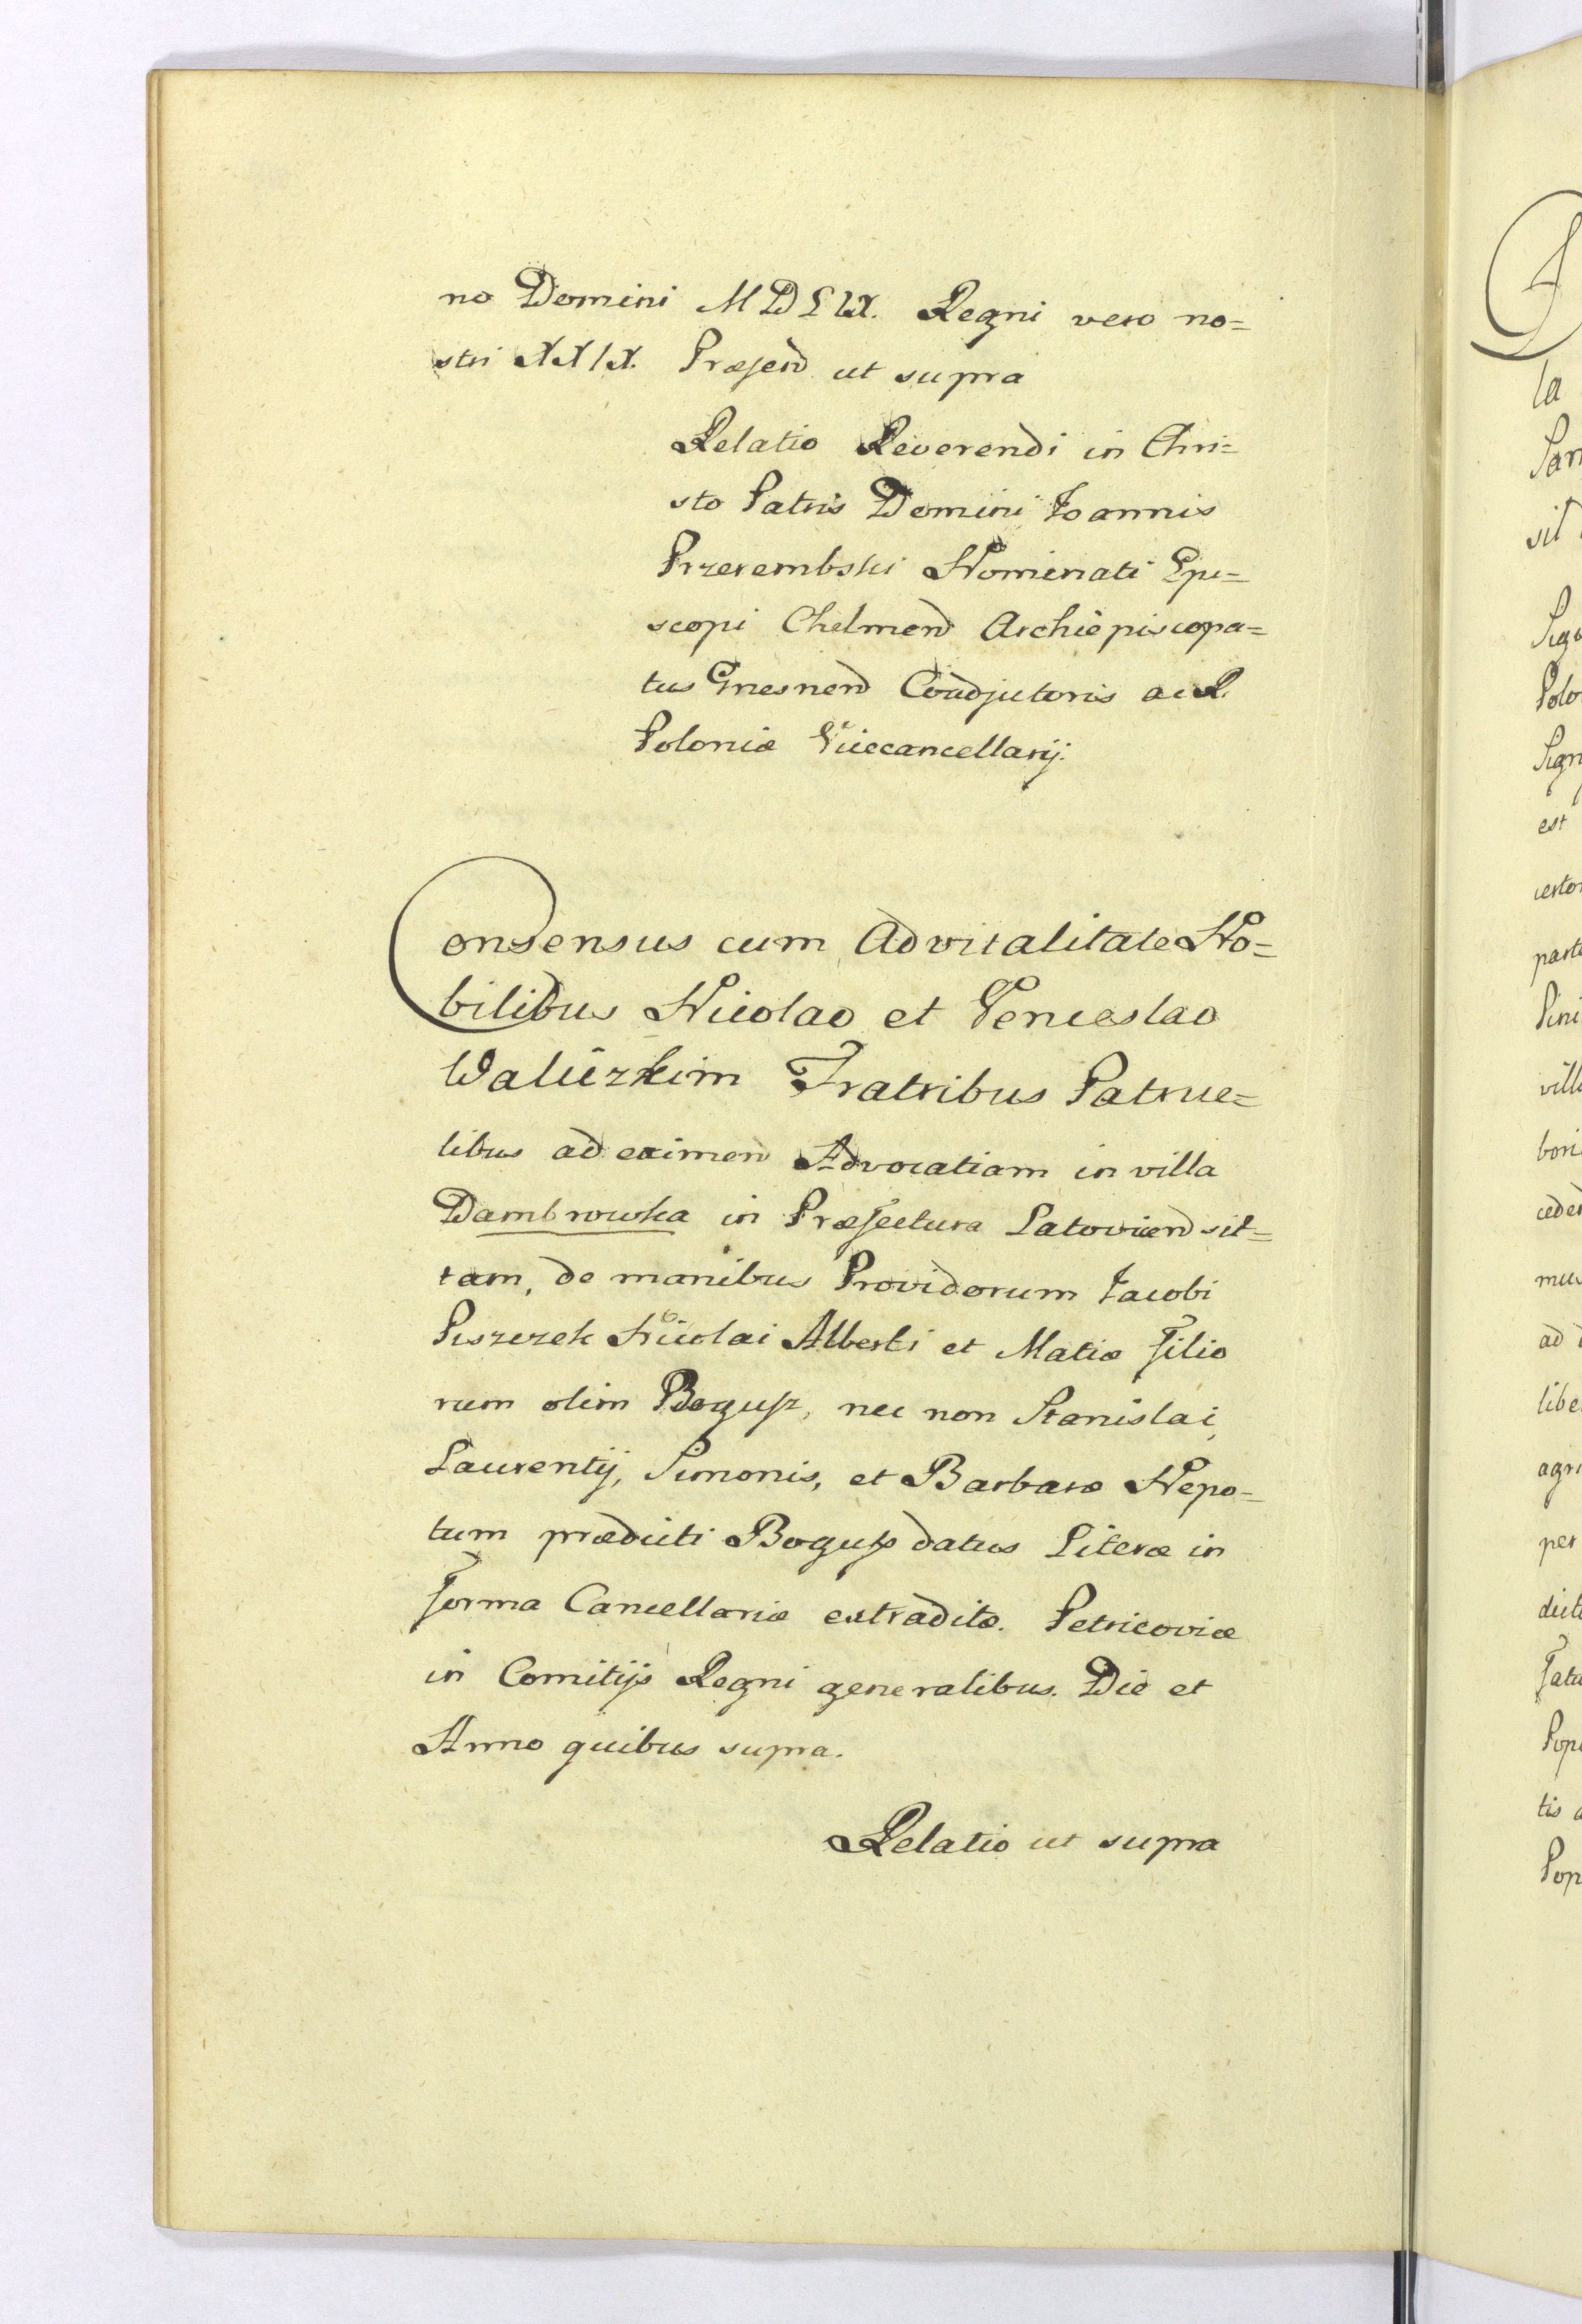 no Domini MDLIX. Regni vero no=
stri XXIX. Præsen ut supra
Relatio Reverendi in Chri=
sto Patris Domini Joannis
Przerembski Nominati Epi=
scopi Chelmen Archiepiscopa=
tus Gnesnen Coadjutoris ac R.
Poloniæ Vicecancellarij.
Consensus cum Advitalitate No=
bilibus Nicolao et Venceslao
Fratribus Patrue=
libus ad eximen Advocatiam in villa
Dambrowka in Præfectura Latovicen sit=
tam, de manibus Providorum Jacobi
Piszczek Nicolai Alberti et Matiæ filio
rum olim Bogusz, nec non Stanislai,
Laurentij, Simonis, et Barbaræ Nepo=
tum prædicti Bogusz datus Literæ in
forma Cancellariæ extraditæ. Petricoviæ
in Comitijs Regni generalibus. Die et
Anno quibus supra.
Relatio ut supra
la
sit
est
per